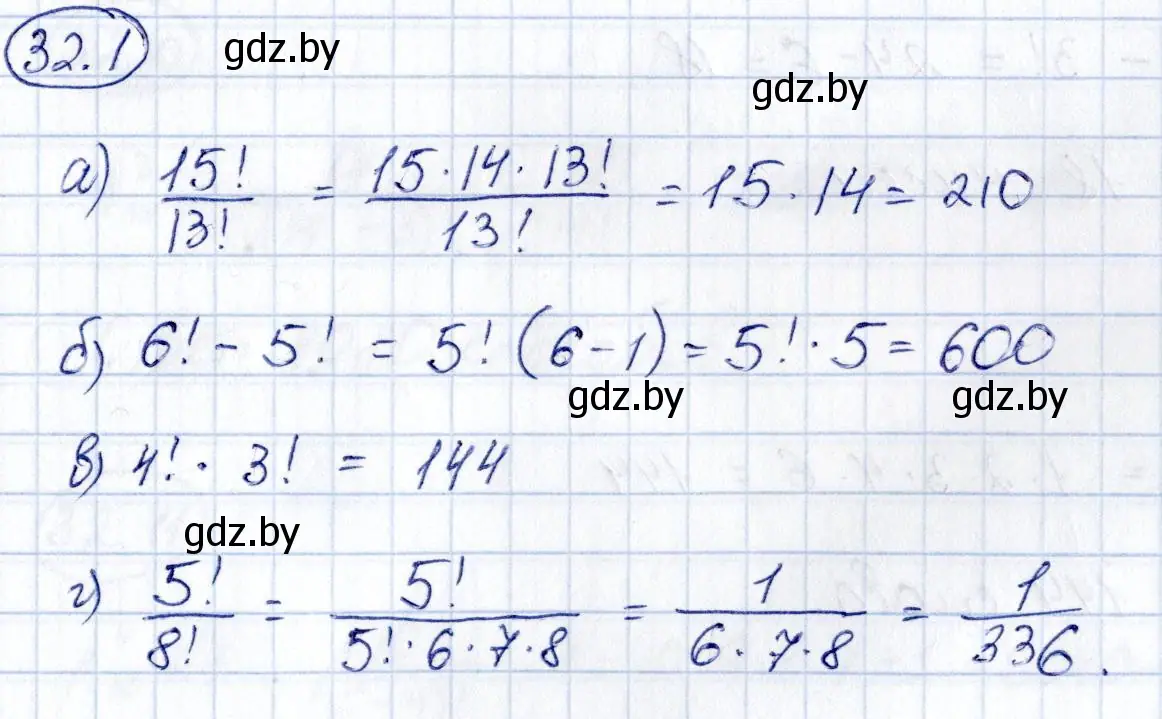 32.1 gdz.by
gdz.by
а) 15!/13! = 15·14·13!/13! = 15·14 = 210
б) 6! - 5! = 5! (6-1) = 5!·5 = 600
gdz.by gdz.by
в) 4!· 3! = 144
gdz.by
г) 5!/8! = 5!/5!·6·7·8 = 1/6·7·8 = 1/336.